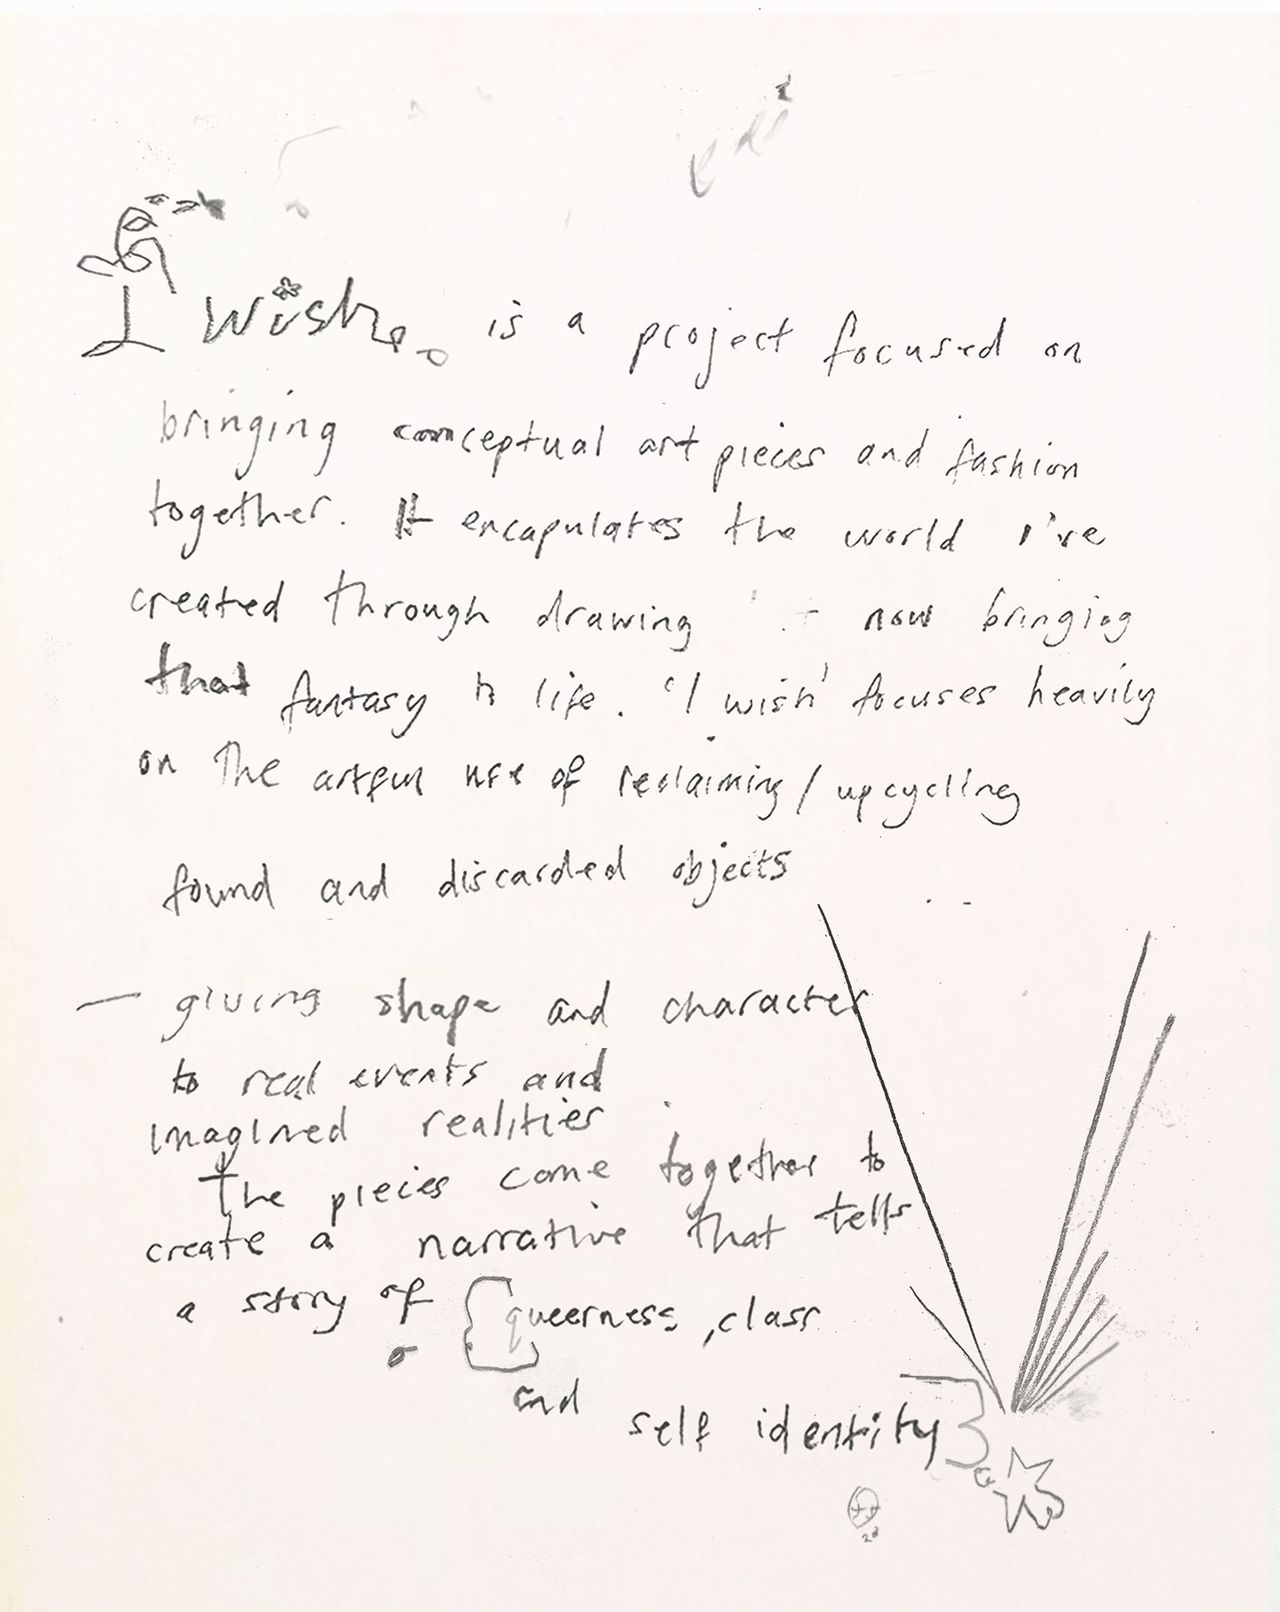 I Wish. is a project focused on
bringing conceptual art pieces and fashion
together. It encapulates the world I've
created through drawing + now bringing
that fantasy to life. 'I wish' focuses heavily
on The artful use of reclaiming / upcycling
found and discarded objects
— giving shape and character
to real events and
imagined realities
The pieces come together to
create a narrative that tells
a story of {queerness, class
and self identity}